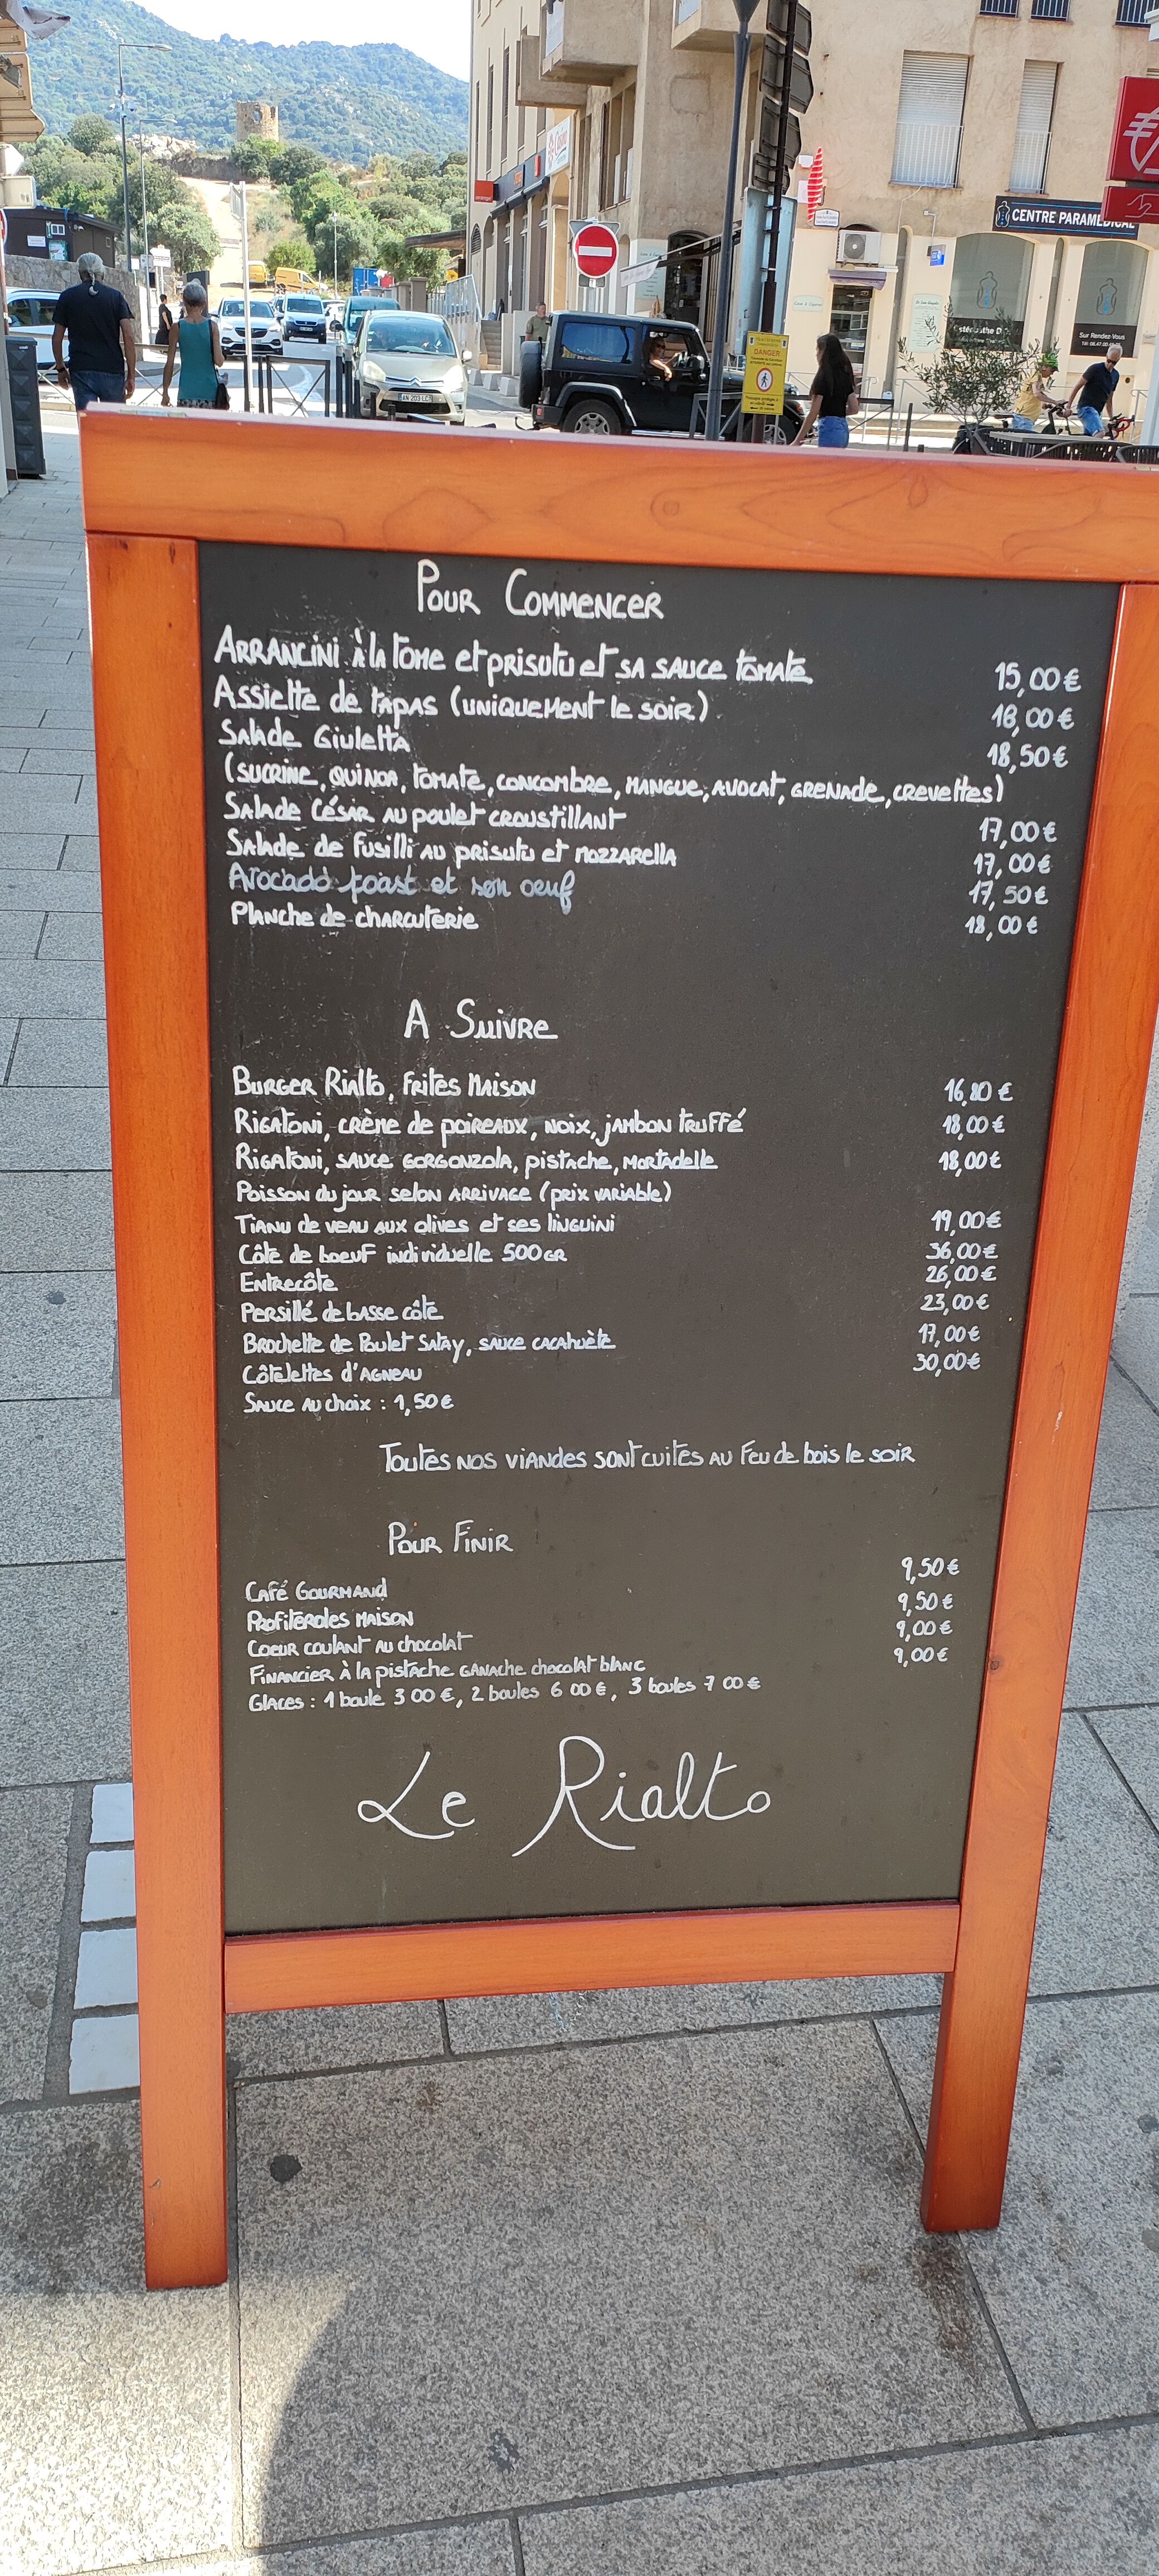 CENTRE PARAMÉDICAL
Sur Rendez-Vous
DANGER
AN 203 LC
Pour Commencer
Arrancini à la tome et prisutu et sa sauce tomate 15,00 €
Assiette de tapas (uniquement le soir) 18,00 €
Salade Giuletta 18,50 €
(sucrine, quinoa, tomate, concombre, mangue, avocat, grenade, crevettes)
Salade César au poulet croustillant 17,00 €
Salade de Fusilli au prisutu et mozzarella 17,00 €
Avocado toast et son oeuf 17,50 €
Planche de charcuterie 18,00 €
A Suivre
Burger Rialto, Frites Maison 16,80 €
Rigatoni, crème de poireaux, noix, jambon truffé 18,00 €
Rigatoni, sauce gorgonzola, pistache, mortadelle 18,00 €
Poisson du jour selon arrivage (prix variable)
Tianu de veau aux olives et ses linguini 19,00 €
Côte de boeuf individuelle 500 gr 36,00 €
Entrecôte 26,00 €
Persillé de basse côte 23,00 €
Brochette de Poulet Satay, sauce cacahuète 17,00 €
Côtelettes d'Agneau 30,00 €
Sauce au choix : 1,50 €
Toutes nos viandes sont cuites au feu de bois le soir
Pour Finir
Café Gourmand 9,50 €
Profiteroles maison 9,50 €
Coeur coulant au chocolat 9,00 €
Financier à la pistache ganache chocolat blanc 9,00 €
Glaces : 1 boule 3 00 €, 2 boules 6 00 €, 3 boules 7 00 €
Le Rialto